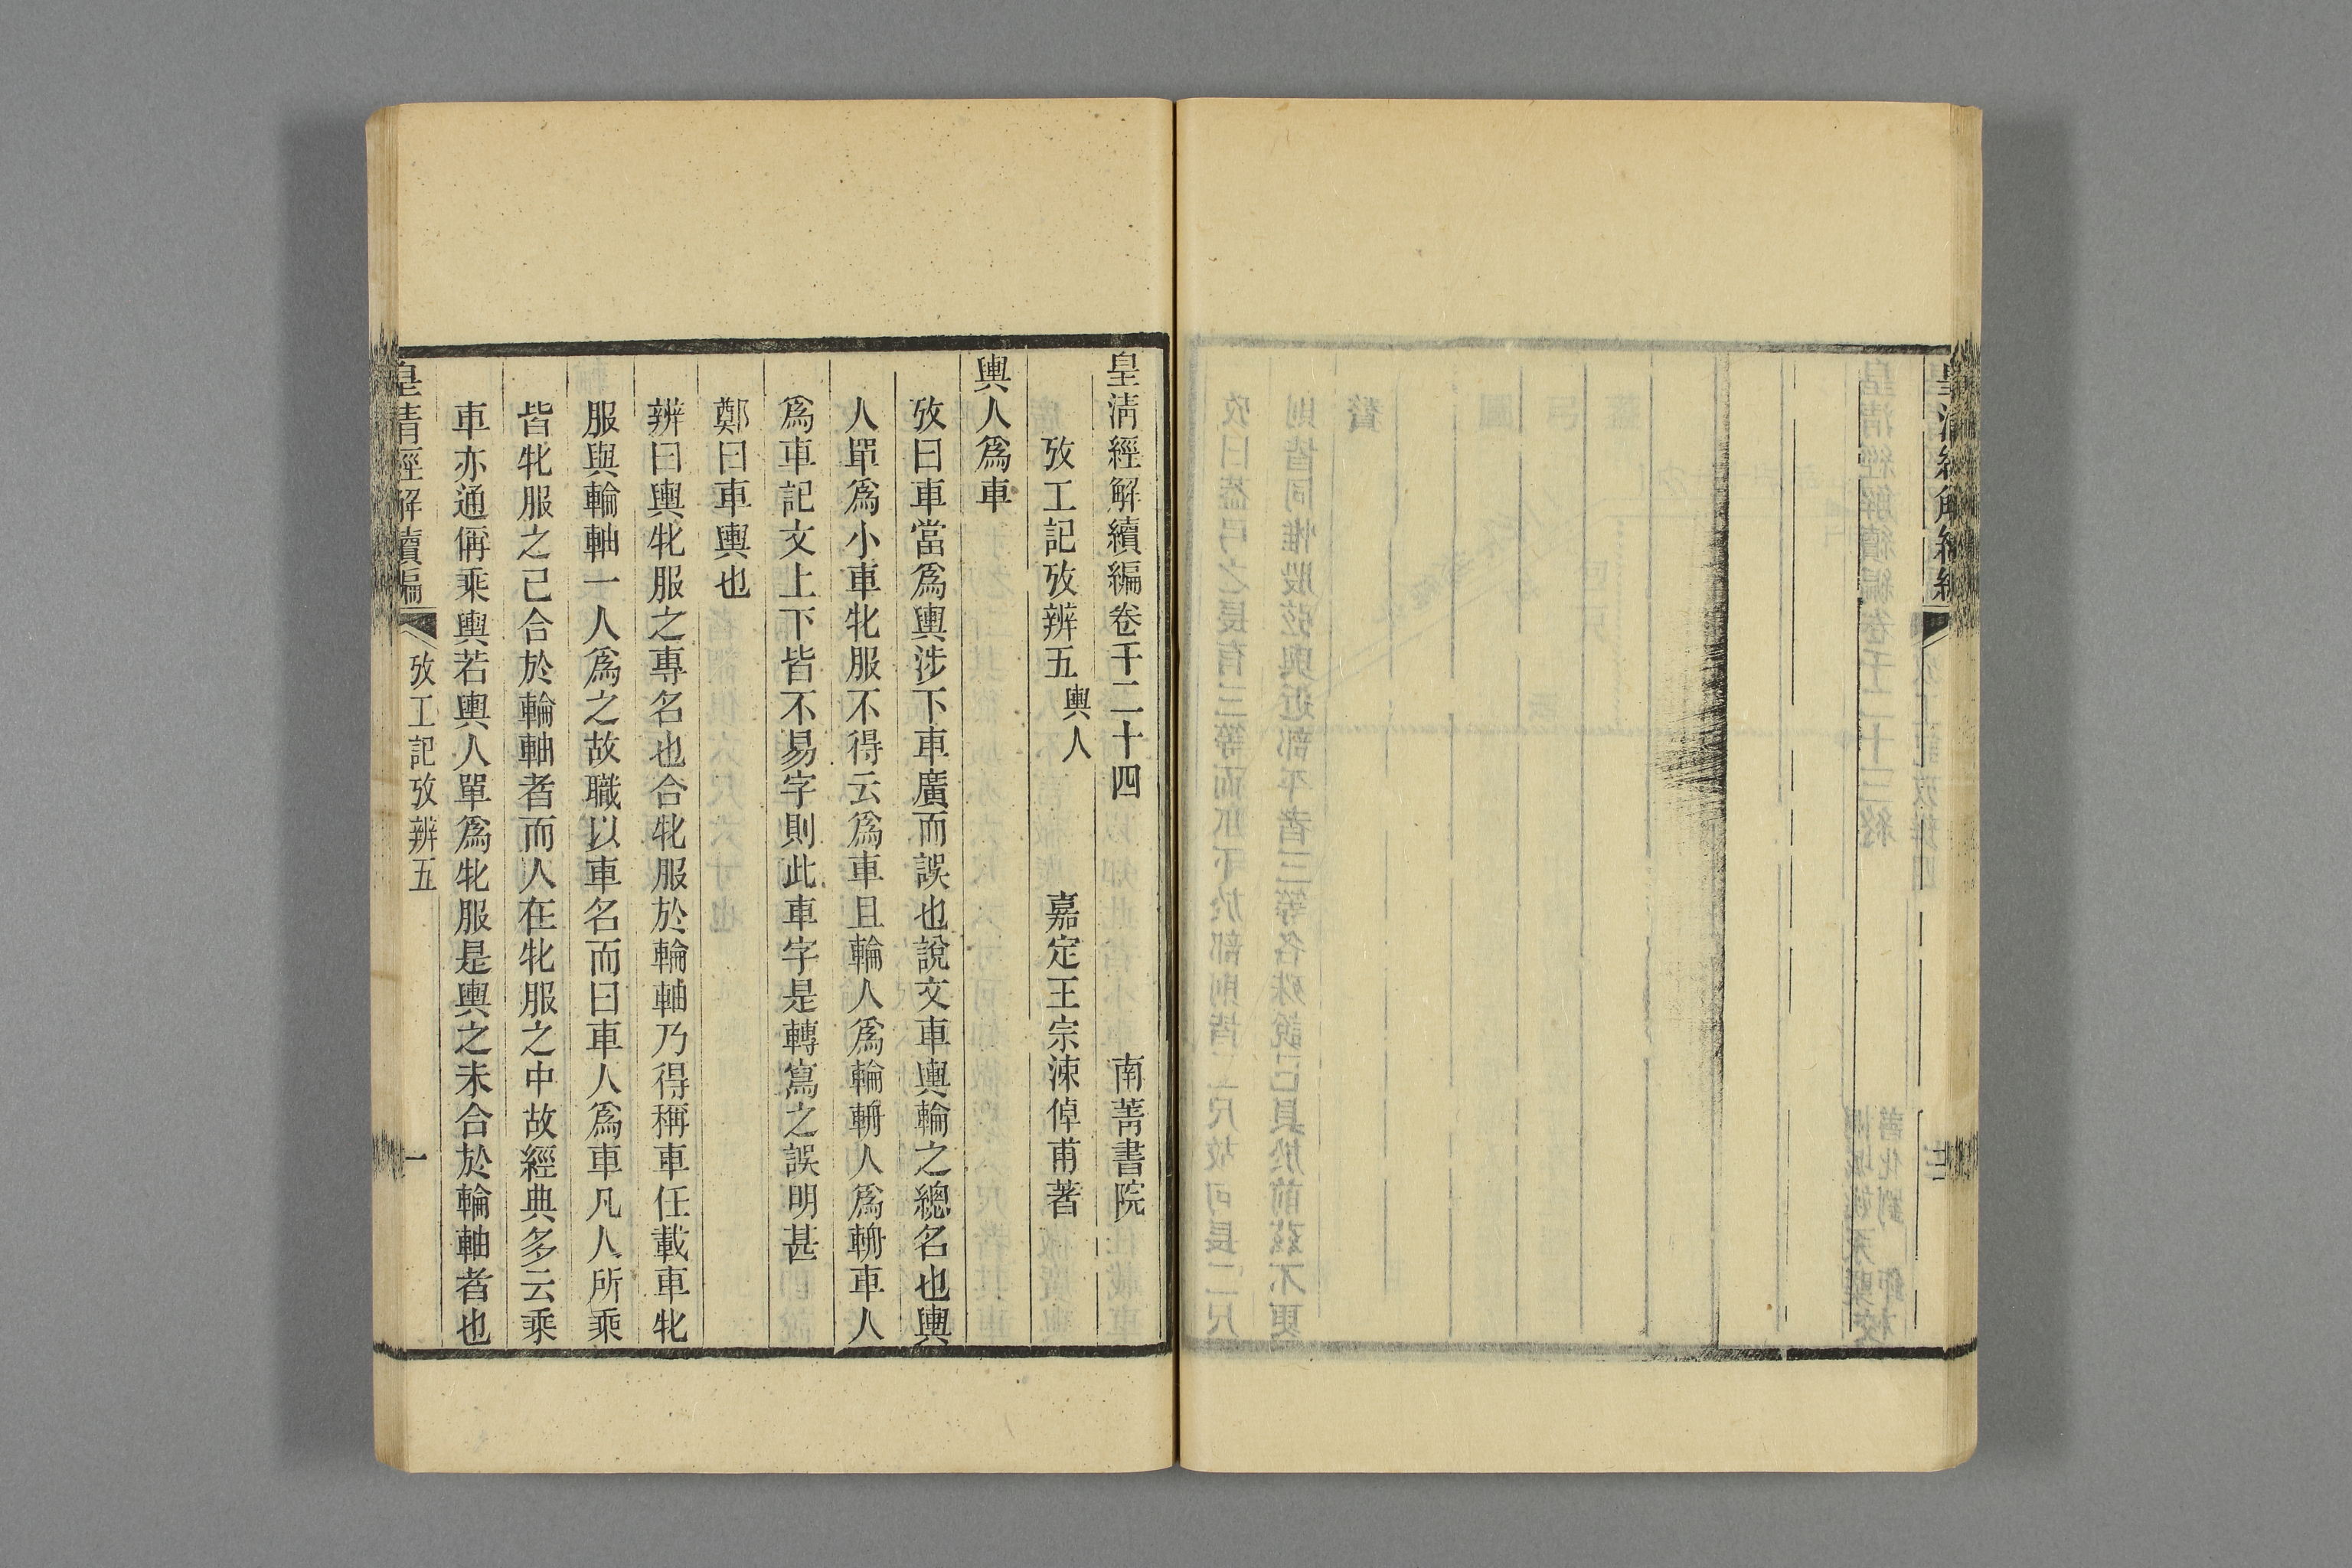 皇清經解續編卷千二十四　南菁書院
攷工記攷辨五輿人　嘉定王宗涑倬甫著
輿人爲車
攷曰車當爲輿涉下車廣而誤也說文車輿輪之總名也輿
人單爲小車牝服不得云爲車且輪人爲輪輈人爲輈車人
爲車記文上下皆不易字則此車字是轉寫之誤明甚
鄭曰車輿也
辨曰輿牝服之專名也合牝服於輪軸乃得稱車任載車牝
服與輪軸一人爲之故職以車名而曰車人爲車凡人所乘
皆牝服之已合於輪軸者而人在牝服之中故經典多云乘
車亦通偁乘輿若輿人單爲牝服是輿之未合於輪軸者也
皇清經解續編　攷工記攷辨五　一